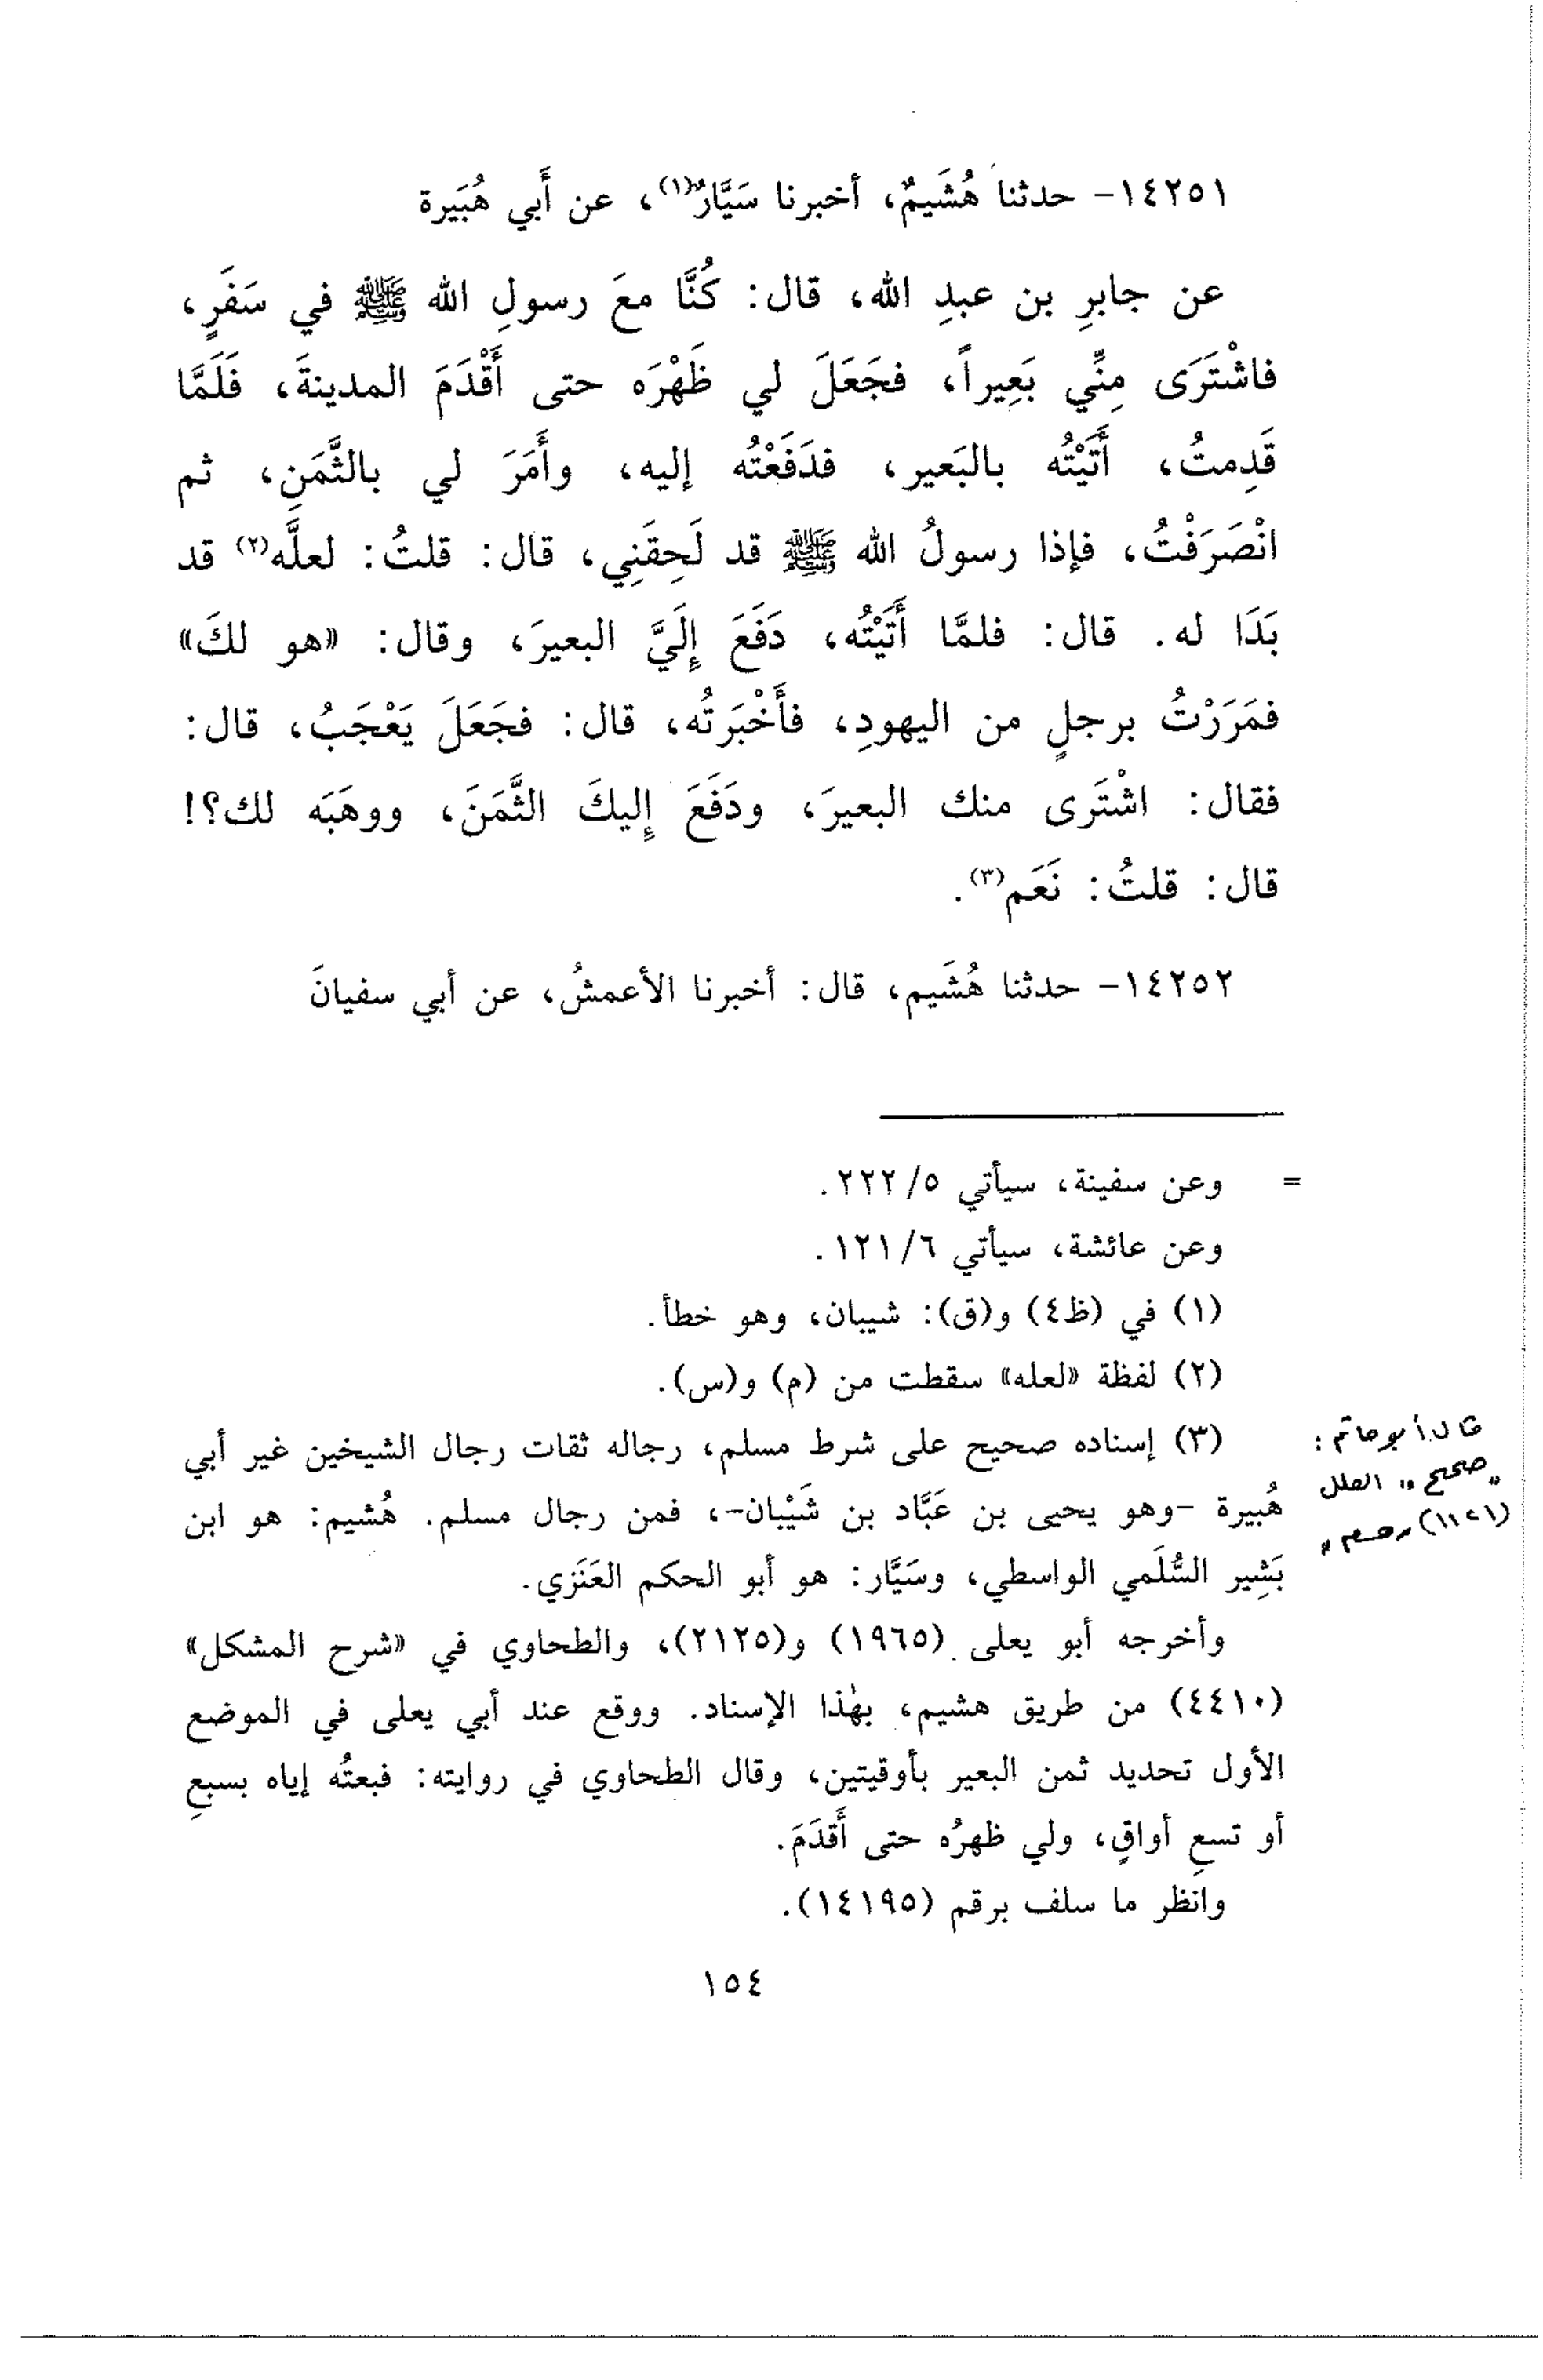 ١٤٢٥١- حدثنا هُشَيمٌ، أخبرنا سَيَّارٌ(١)، عن أَبي هُبَيرة
عن جابرِ بن عبدِ الله، قال: كُنَّا معَ رسولِ الله ﷺ في سَفَرٍ،
فاشْتَرَى مِنِّي بَعِيراً، فجَعَلَ لي ظَهْرَه حتى أَقْدَمَ المدينةَ، فَلَمَّا
قَدِمتُ، أَتَيْتُه بالبَعير، فدَفَعْتُه إليه، وأَمَرَ لي بالثَّمَنِ، ثم
انْصَرَفْتُ، فإذا رسولُ الله ﷺ قد لَحِقَنِي، قال: قلتُ: لعلَّه(٢) قد
بَدَا له. قال: فلمَّا أَتَيْتُه، دَفَعَ إِلَيَّ البعيرَ، وقال: «هو لكَ»
فمَرَرْتُ برجلٍ من اليهودِ، فأَخْبَرتُه، قال: فجَعَلَ يَعْجَبُ، قال:
فقال: اشْتَرى منك البعيرَ، ودَفَعَ إِليكَ الثَّمَنَ، ووهَبَه لك؟!
قال: قلتُ: نَعَم(٣).
١٤٢٥٢- حدثنا هُشَيم، قال: أخبرنا الأعمشُ، عن أبي سفيانَ
= وعن سفينة، سيأتي ٢٢٢/٥.
وعن عائشة، سيأتي ١٢١/٦.
(١) في (ظ٤) و(ق): شيبان، وهو خطأ.
(٢) لفظة «لعله» سقطت من (م) و(س).
(٣) إسناده صحيح على شرط مسلم، رجاله ثقات رجال الشيخين غير أبي
هُبيرة -وهو يحيى بن عَبَّاد بن شَيْبان-، فمن رجال مسلم. هُشيم: هو ابن
بَشِير السُّلَمي الواسطي، وسَيَّار: هو أبو الحكم العَنَزي.
وأخرجه أبو يعلى (١٩٦٥) و(٢١٢٥)، والطحاوي في «شرح المشكل»
(٤٤١٠) من طريق هشيم، بهٰذا الإسناد. ووقع عند أبي يعلى في الموضع
الأول تحديد ثمن البعير بأوقيتين، وقال الطحاوي في روايته: فبعتُه إياه بسبعِ
أو تسعِ أواقٍ، ولي ظهرُه حتى أَقدَمَ.
وانظر ما سلف برقم (١٤١٩٥).
قال أبو حاتم:
"صحيح" العلل
(١١٢١)
١٥٤